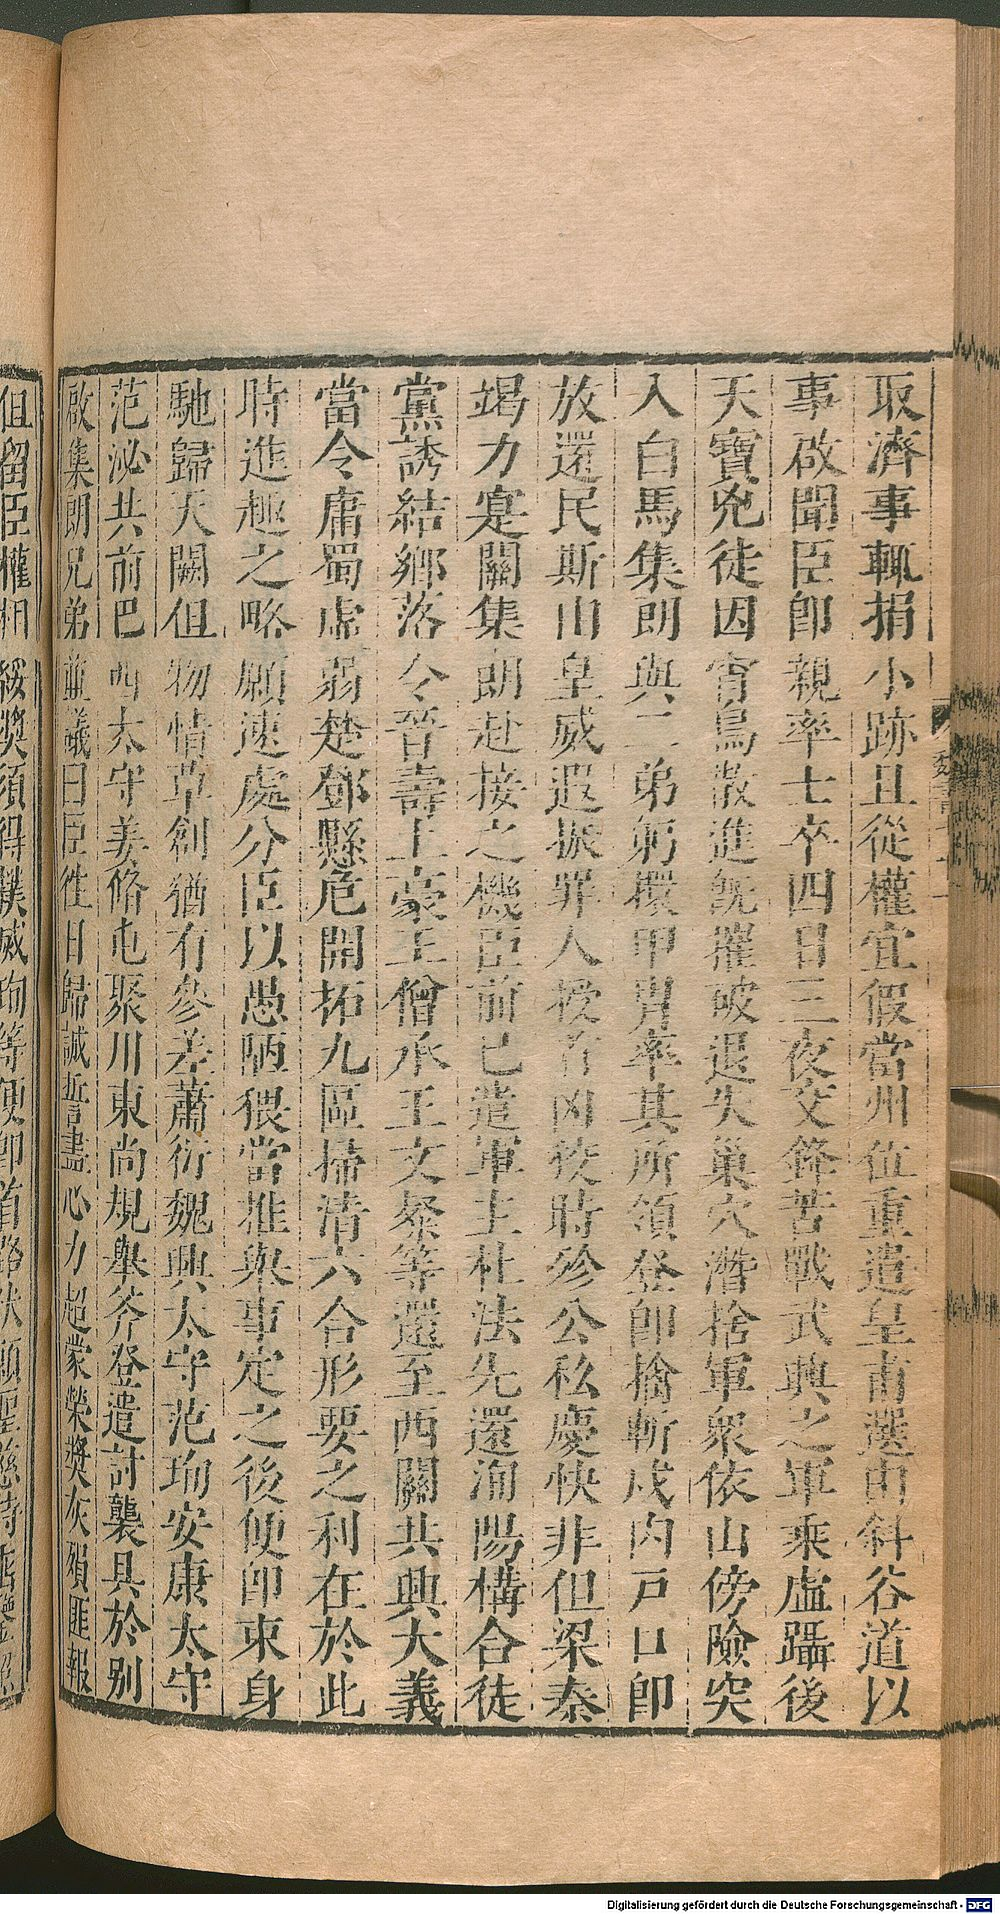 取濟事輒捐小跡且從權宜假當州位重遣皇甫選由斜谷道以
事啟聞臣即親率士卒四日三夜交鋒苦戰武興之軍乘虛躡後
天寶兇徒因宵鳥散進既摧破退失巢穴潛捨軍眾依山傍險突
入白馬集朗與二弟躬擐甲冑率其所領登即擒斬戍內戶口即
放還民斯由皇威遐振罪人授首凶狡時殄公私慶快非但梁秦
竭力寔關集朗赴接之機臣前已遣軍主杜法先還洵陽構合徒
黨誘結鄉落令晉壽土豪王僧承王文粲等還至西關共興大義
當今庸蜀虛弱楚鄧懸危開拓九區掃清六合形要之利在於此
時進趣之略願速處分臣以愚陋猥當推轂事定之後便即束身
馳歸天闕但物情草創猶有參差蕭衍魏興太守范珣安康太守
范泌共前巴西太守姜脩屯聚川東尚規舉斧登遣討襲具於別
啟集朗兄弟並議曰臣往日歸誠誓盡心力超蒙榮獎灰殞匪報
但留臣權相綏獎須得撲滅珣等便即首路伏願聖慈特
Digitalisierung gefördert durch die Deutsche Forschungsgemeinschaft - DFG